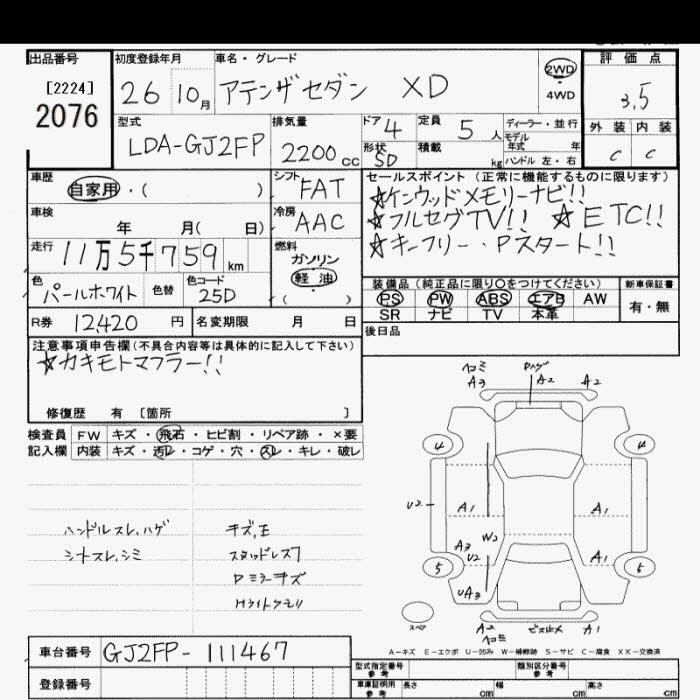 出品番号
[2224]
2076
初度登録年月
26 10月
車名・グレード
アテンザセダン XD
2WD
4WD
評価点
3.5
外装 内装
C C
型式
LDA-GJ2FP
排気量
2200cc
ドア 4
形状 SD
定員 5人
積載 kg
ディーラー・並行
モデル
年式 年
ハンドル 左・右
車歴
自家用・( )
シフト
FAT
車検
年 月( 日)
冷房
AAC
走行
11万5千759km
燃料
ガソリン
軽油
( )
色
パールホワイト
色替
色コード
25D
R券 12420円
名変期限 月 日
セールスポイント (正常に機能するものに限ります)
☆ケンウッドメモリーナビ!!
☆フルセグTV!! ☆ETC!!
☆キーフリー・Pスタート!!
装備品 (純正品に限り○をつけてください)
PS PW ABS エアB AW
SR ナビ TV 本革
新車保証書
有・無
後日品
注意事項申告欄(不具合内容等は具体的に記入して下さい)
☆カキモトマフラー!!
修復歴 有 〔箇所 〕
検査員 FW キズ・飛石・ヒビ割・リペア跡・×要
記入欄 内装 キズ・汚レ・コゲ・穴・スレ・キレ・破レ
ハンドルスレ、ハゲ
シナスレ、シミ
スタッドレス7
Pミラーキズ
Hライトクモリ
ヘコミ
A3
A2
A2
4
4
U2
A1
A1
A3
U2
W2
A1
5
5
UA3
スペア
A2
ヘコミ
ビス止メ
A1
A-キズ E-エクボ U-凹み W-補修跡 S-サビ C-腐食 XX-交換済
車台番号 GJ2FP-111467
登録番号
型式指定番号
参考
類別区分番号
参考
車庫証明用
参考
長さ cm
幅 cm
高さ cm